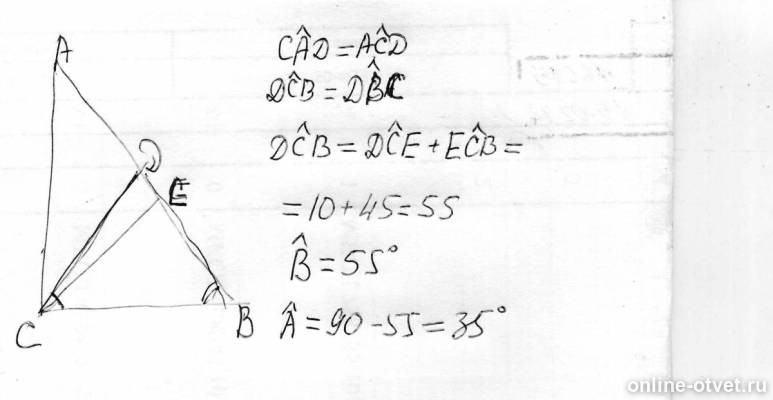 A
D
E
C
B
CÂD = AĈD
DĈB = DB̂C
DĈB = DĈE + EĈB =
= 10 + 45 = 55
B̂ = 55°
Â = 90 - 55 = 35°
online-otvet.ru